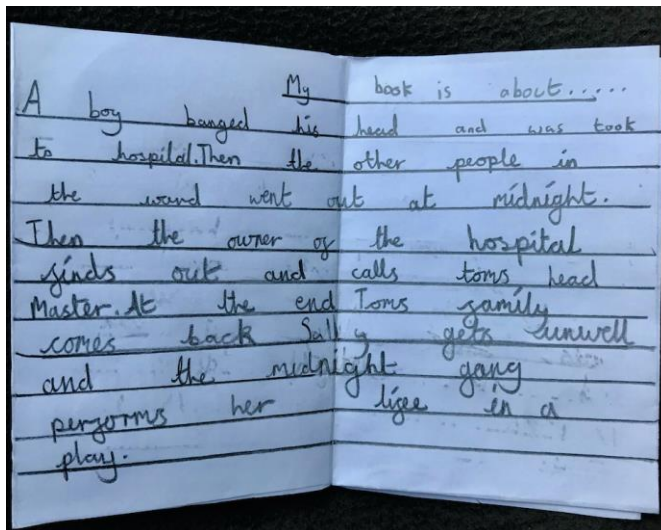 My book is about.....
A boy banged his head and was took
to hospital.Then the other people in
the ward went out at midnight.
Then the owner of the hospital
finds out and calls toms head
Master.At the end Toms family
comes back Sally gets unwell
and the midnight gang
performs her life in a
play.